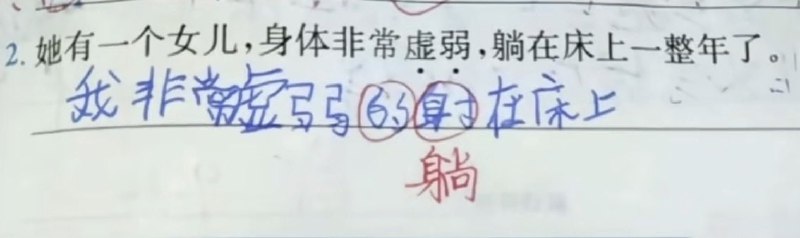 2. 她有一个女儿,身体非常虚弱,躺在床上一整年了。
我非常虚弱的射在床上
躺